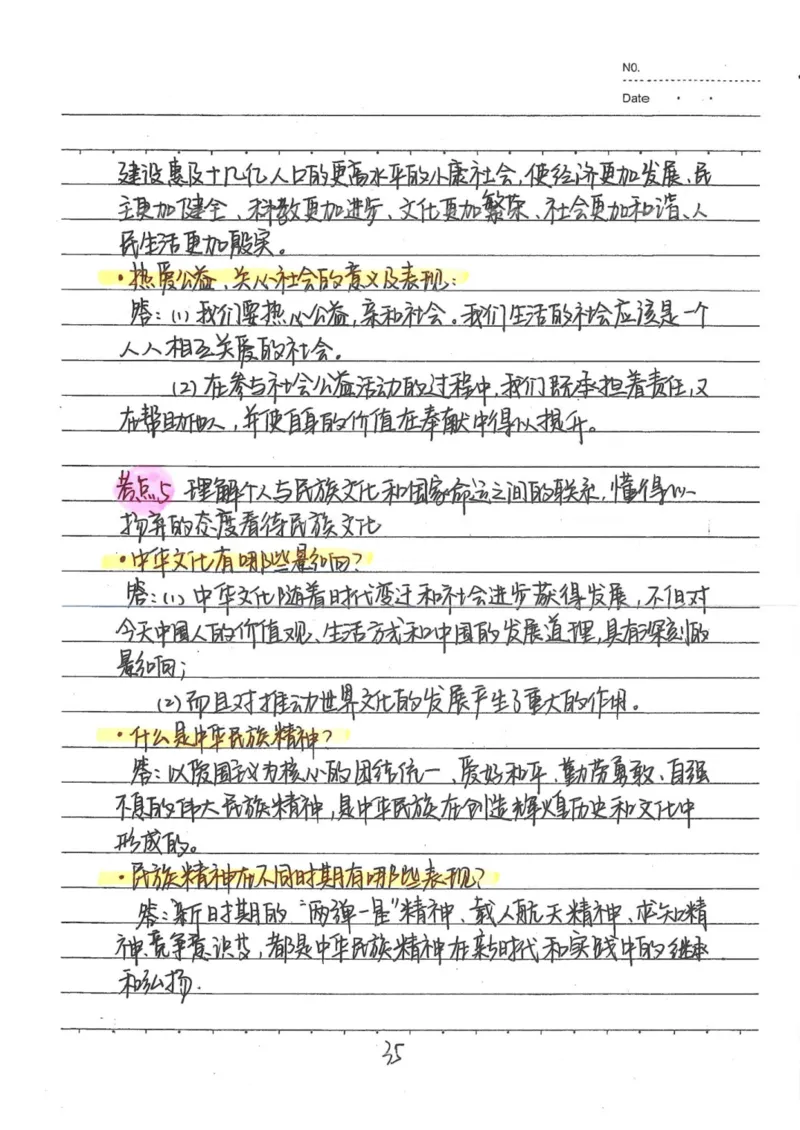 NO.
Date
建设惠及十几亿人口的更高水平的小康社会,使经济更加发展、民
主更加健全、科教更加进步、文化更加繁荣、社会更加和谐、人
民生活更加殷实。
·热爱公益、关心社会的意义及表现:
答:(1)我们要热心公益,亲和社会。我们生活的社会应该是一个
人人相互关爱的社会。
(2)在参与社会公益活动的过程中,我们既承担着责任,又
在帮助他人,并使自身的价值在奉献中得以提升。
考点5 理解个人与民族文化和国家命运之间的联系,懂得以
扬弃的态度看待民族文化
·中华文化有哪些影响?
答:(1)中华文化随着时代变迁和社会进步获得发展,不但对
今天中国人的价值观、生活方式和中国的发展道理,具有深刻的
影响;
(2)而且对推动世界文化的发展产生了重大的作用。
·什么是中华民族精神?
答:以爱国主义为核心的团结统一、爱好和平、勤劳勇敢、自强
不息的伟大民族精神,是中华民族在创造辉煌历史和文化中
形成的。
·民族精神在不同时期有哪些表现?
答:新时期的“两弹一星”精神、载人航天精神、求知精
神、竞争意识等,都是中华民族精神在新时代和实践中的继承
和弘扬.
35